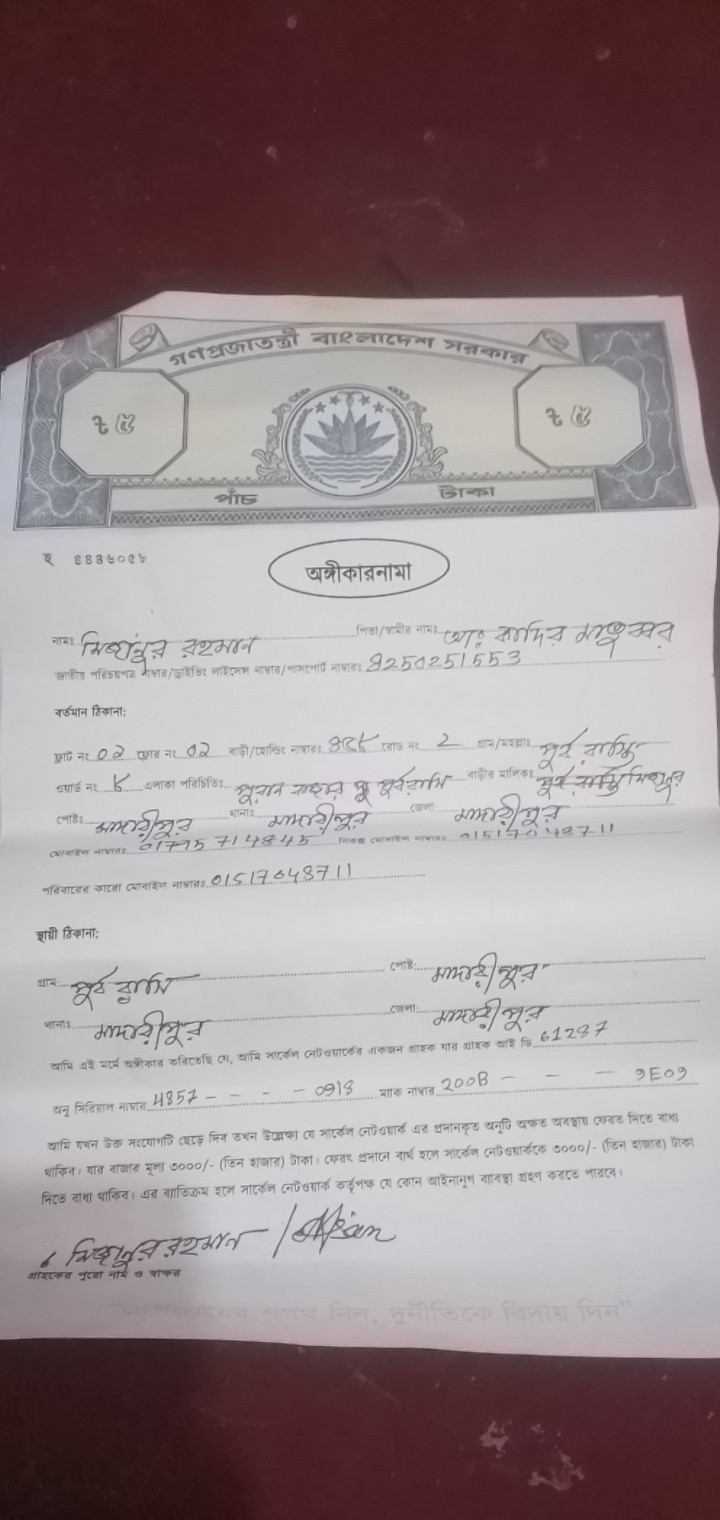 গণপ্রজাতন্ত্রী বাংলাদেশ সরকার
৳ ৫ ৳ ৫
পাঁচ টাকা
অঙ্গীকারনামা
নামঃ মিজানুর রহমান পিতা/স্বামীর নামঃ আঃ কাদির মাতুব্বর
জাতীয় পরিচয়পত্র নাম্বার/ড্রাইভিং লাইসেন্স নাম্বার/পাসপোর্ট নাম্বারঃ 8250251553
বর্তমান ঠিকানা:
ফ্লাট নং 02 ফ্লোর নং 02 বাড়ী/হোল্ডিং নাম্বারঃ রোড নং 2 গ্রাম/মহল্লাঃ পূর্ব রাস্তি
ওয়ার্ড নং ৮ এলাকা পরিচিতিঃ পুরান বাজার পূর্বরাস্তি বাড়ীর মালিকঃ মিজানুর
পোষ্টঃ মাদারীপুর থানাঃ মাদারীপুর জেলা মাদারীপুর
মোবাইল নাম্বারঃ 01795714845 বিকল্প মোবাইল নাম্বারঃ 01517048711
পরিবারের কারো মোবাইল নাম্বারঃ 01517048711
স্থায়ী ঠিকানা:
গ্রাম: পূর্ব রাস্তি পোষ্ট: মাদারীপুর
থানাঃ মাদারীপুর জেলা: মাদারীপুর
আমি এই মর্মে অঙ্গীকার করিতেছি যে, আমি সার্কেল নেটওয়ার্কের একজন গ্রাহক যার গ্রাহক আই ডি 61287
অনু সিরিয়াল নাম্বার 4857 - - - - 0918 ম্যাক নাম্বার 200B - - - 9E09
আমি যখন উক্ত সংযোগটি ছেড়ে দিব তখন উল্লেক্ষ্য যে সার্কেল নেটওয়ার্ক এর প্রদানকৃত অনুটি অক্ষত অবস্থায় ফেরত দিতে বাধ্য
থাকিব। যার বাজার মূল্য ৩০০০/- (তিন হাজার) টাকা। ফেরৎ প্রদানে ব্যর্থ হলে সার্কেল নেটওয়ার্ককে ৩০০০/- (তিন হাজার) টাকা
দিতে বাধ্য থাকিব। এর ব্যতিক্রম হলে সার্কেল নেটওয়ার্ক কর্তৃপক্ষ যে কোন আইনানুগ ব্যবস্থা গ্রহণ করতে পারবে।
মিজানুর রহমান
গ্রাহকের পুরো নাম ও স্বাক্ষর
শপথ নিন, দুর্নীতিকে বিদায় দিন"